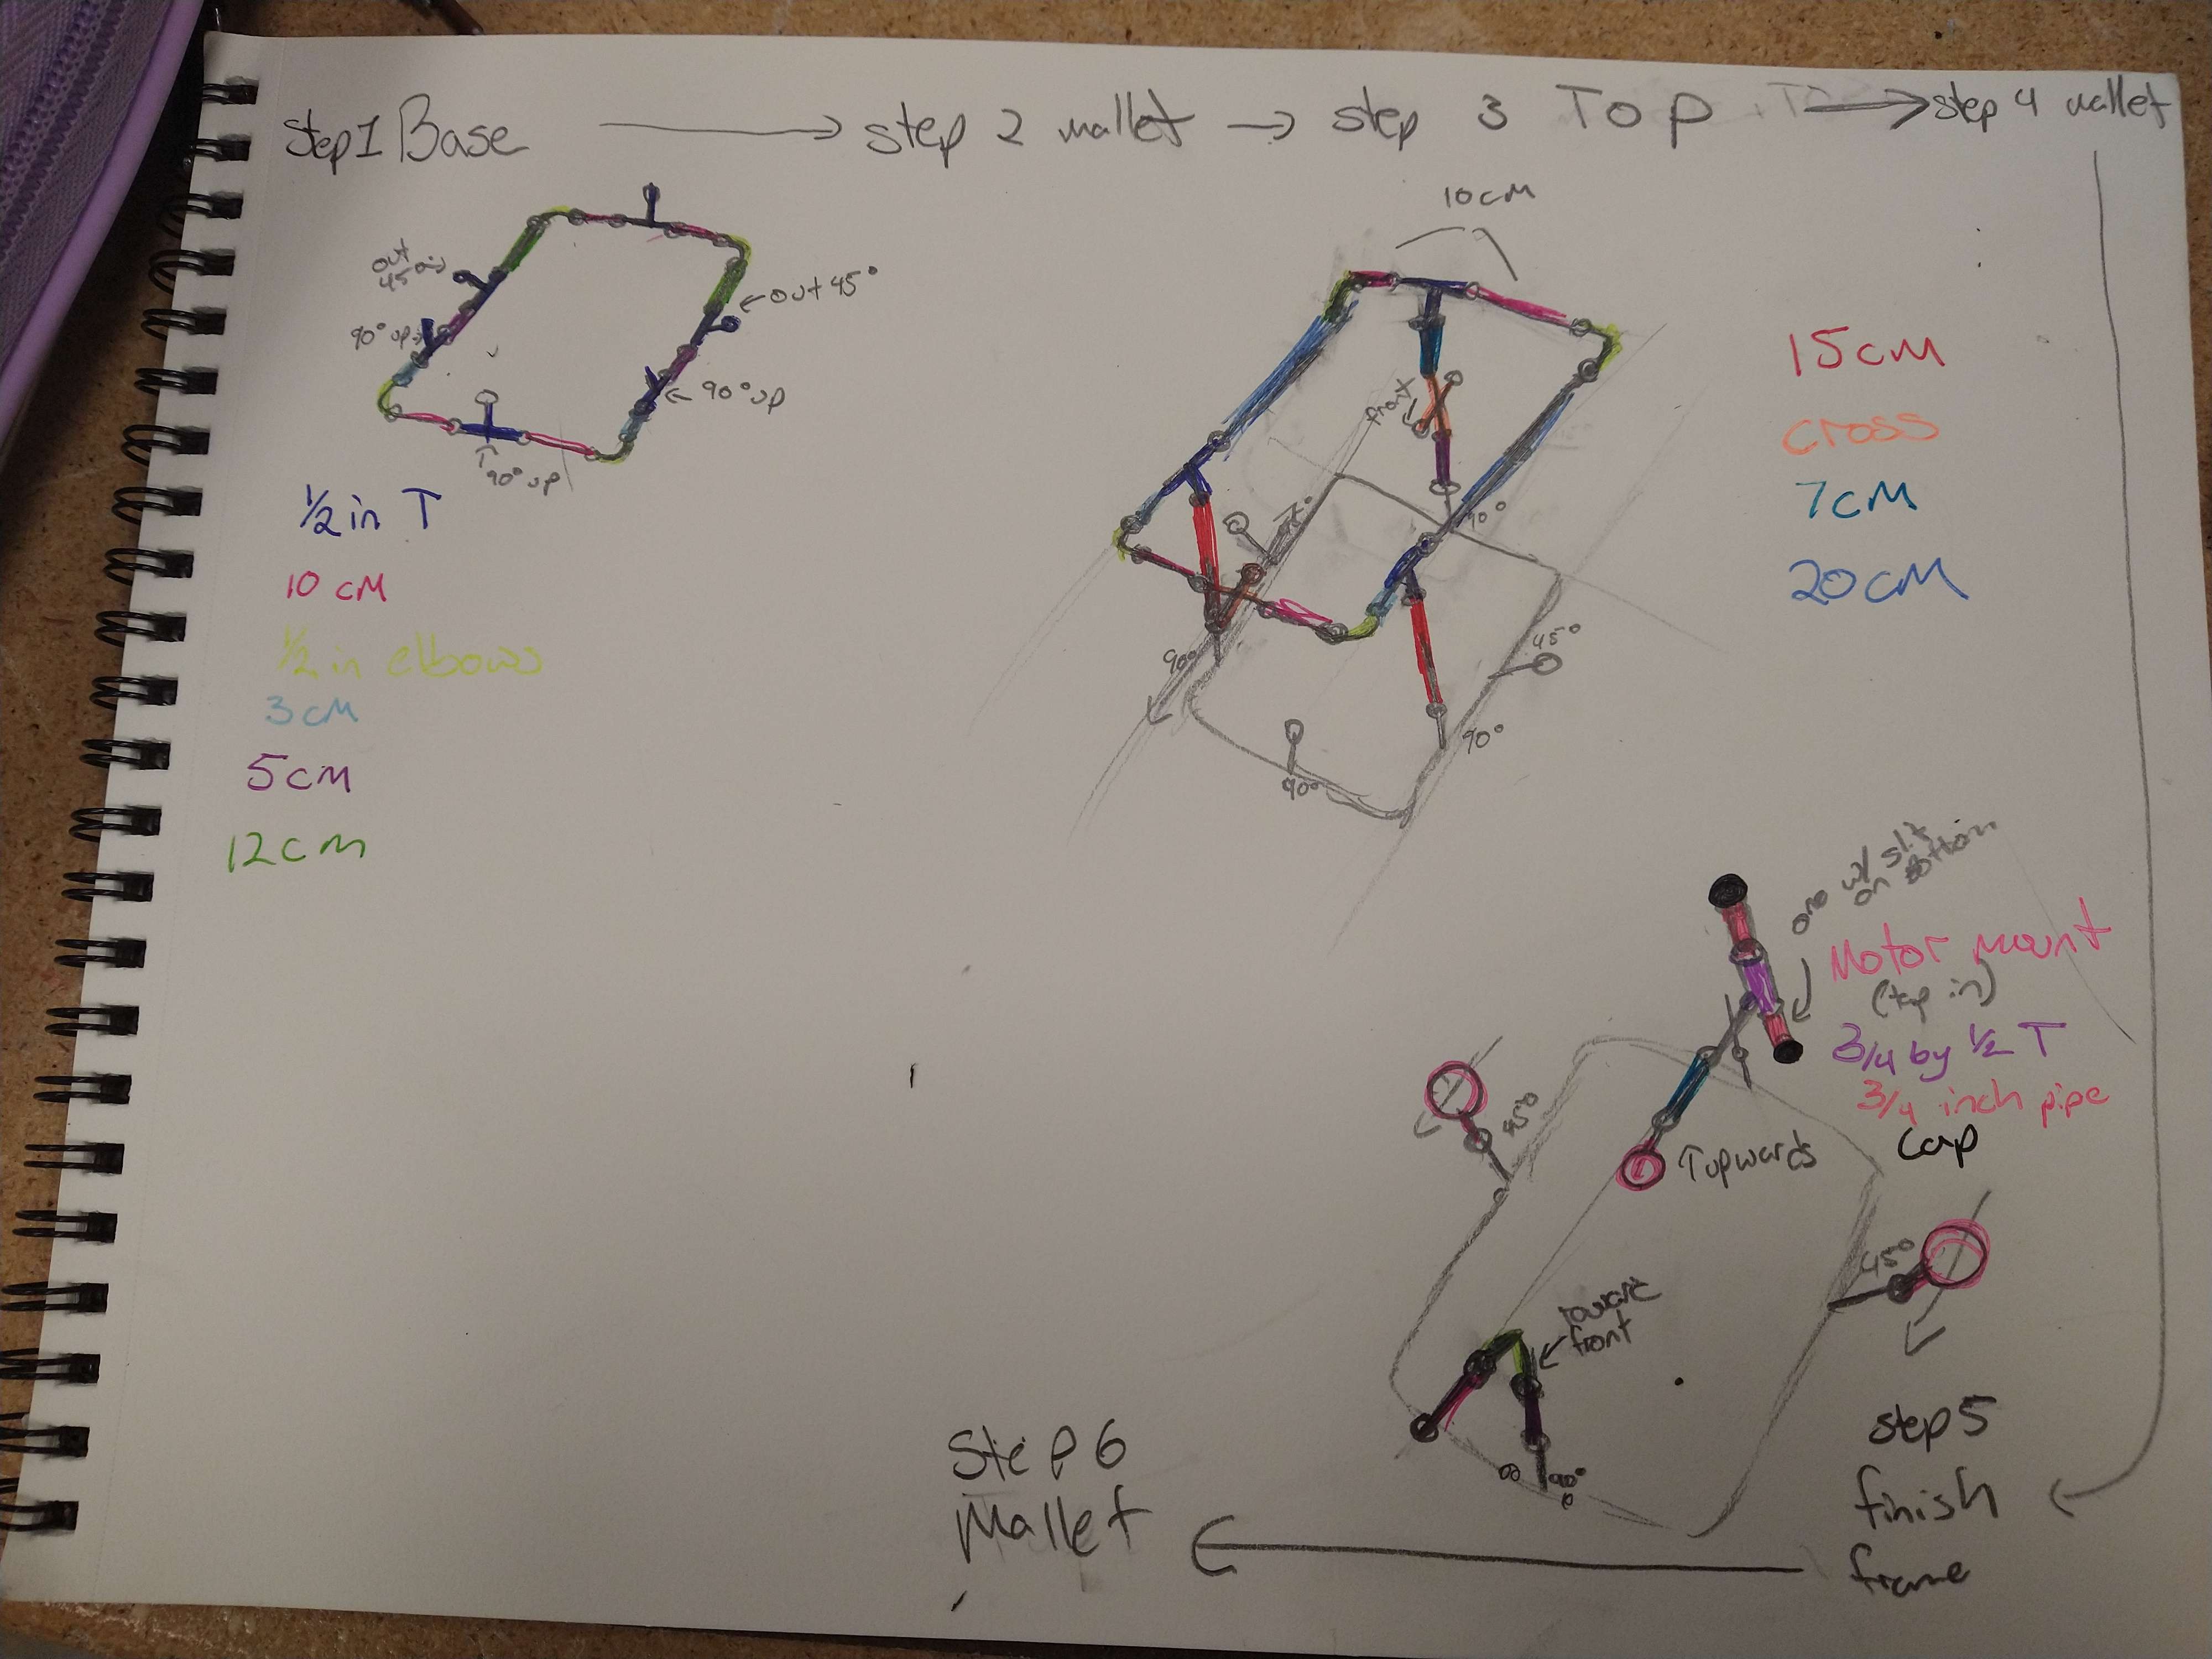 Step 1 Base → step 2 mallet → step 3 Top → step 4 mallet
out
45°
90° up
out 45°
90° up
90° up
½ in T
10 cm
½ in elbows
3 cm
5 cm
12 cm
10 cm
front
90°
90°
45°
90°
90°
15 cm
cross
7 cm
20 cm
one w/ slit
on bottom
Motor mount
(tap in)
3/4 by ½ T
3/4 inch pipe
cap
45°
T upwards
45°
toward
front
90°
step 5
finish
frame
Step 6
Mallet